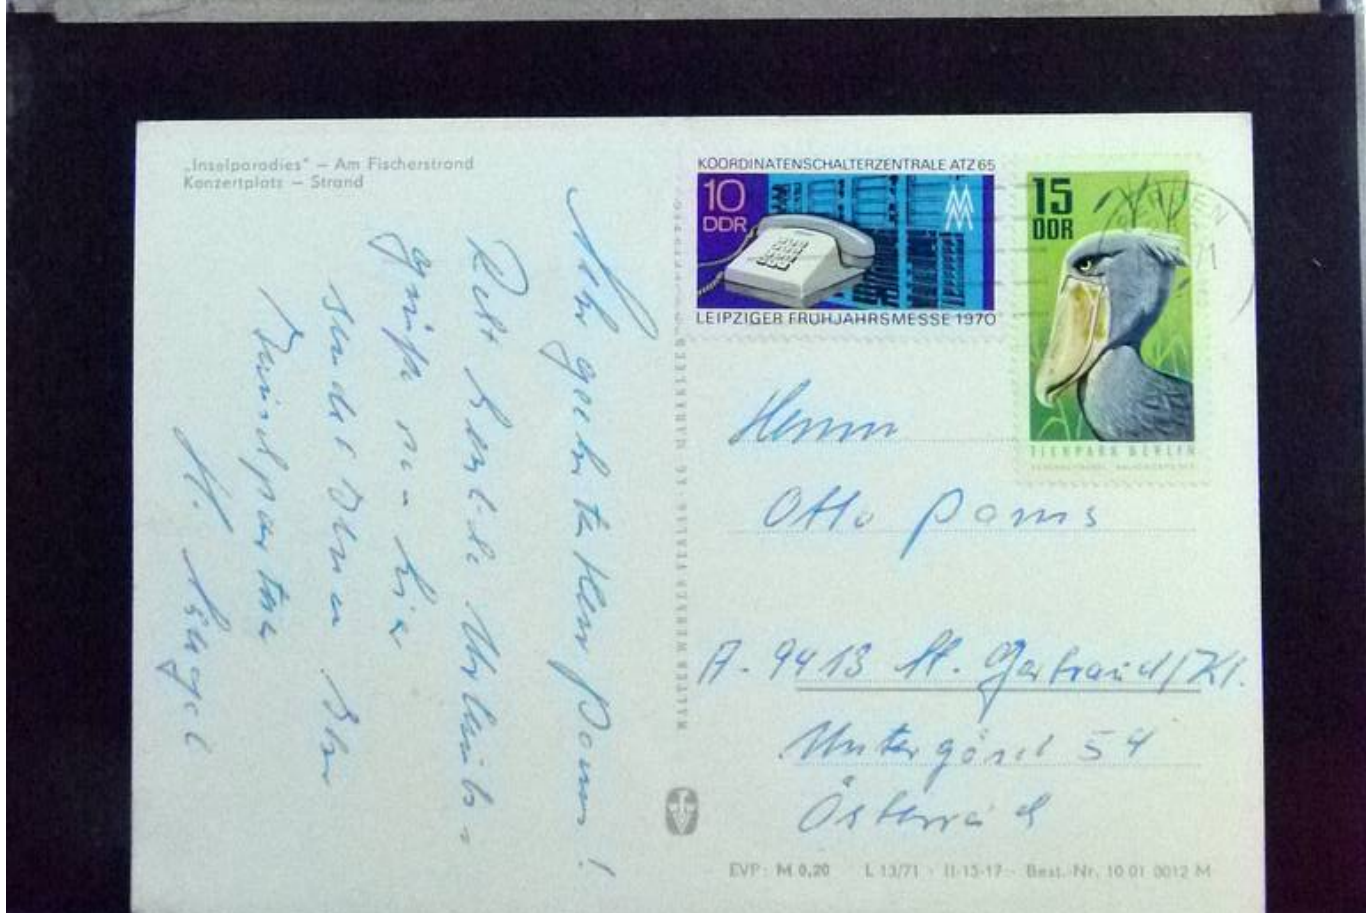 „Inselparadies" – Am Fischerstrand
Konzertplatz – Strand
Sehr geehrter Herr Poms!
Recht herzliche Urlaubs-
grüße von hier
sendet Ihnen Ihr
Tauschpartner
H.
KOORDINATENSCHALTERZENTRALE ATZ 65
10
DDR
MM
LEIPZIGER FRÜHJAHRSMESSE 1970
15
DDR
TIERPARK BERLIN
Herrn
Otto Poms
A-9413 St. Gertraud/Kl.
Untergösel 54
Österreich
EVP: M 0,20 L 13/71 · II-15-17 · Best.-Nr. 10 01 0012 M